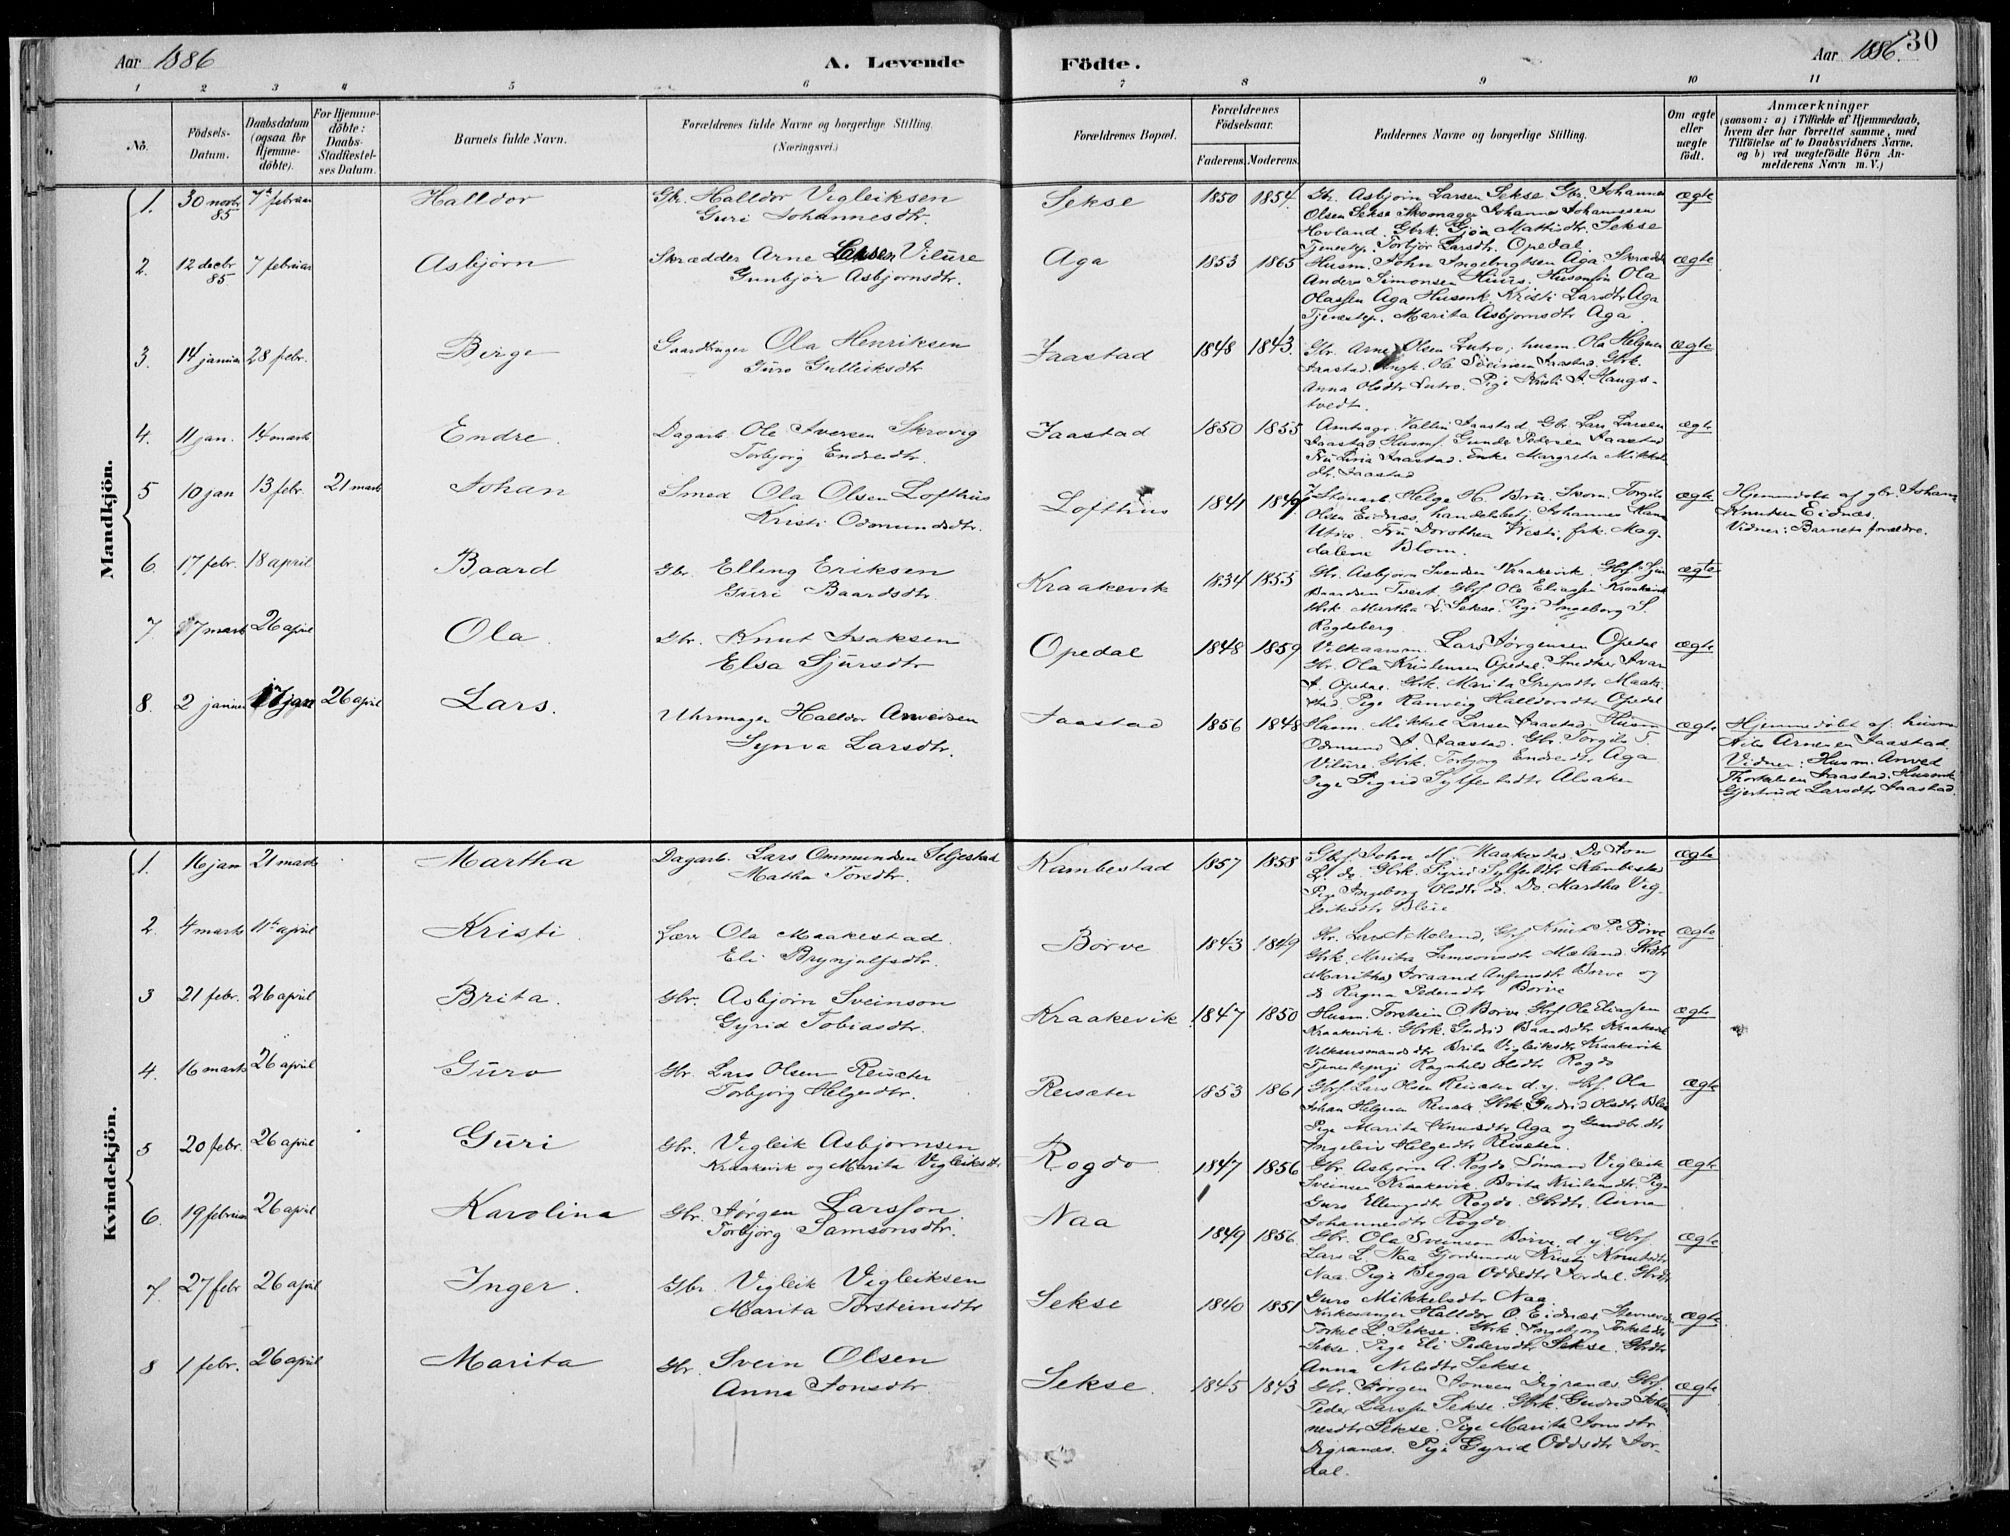 Aar 1886
A. Levende
Födte.
Aar 1886.
30
1 2 3 4 5 6 7 8 9 10 11
No.
Födsels-
Datum.
Daabsdatum
(ogsaa for
Hjemme-
döbte).
For Hjemme-
döbte:
Daabs-
Stadfæstel-
ses Datum.
Barnets fulde Navn.
Forældrenes fulde Navne og borgerlige Stilling.
(Næringsvei.)
Forældrenes Bopæl.
Forældrenes
Födselsaar.
Faderens. Moderens.
Faddernes Navne og borgerlige Stilling.
Om ægte
eller
uægte
födt.
Anmærkninger
(saasom: a) i Tilfælde af Hjemmedaab,
hvem der har forrettet samme, med
Tilföielse af to Daabsvidners Navne.
og b) ved uægtefödte Börn An-
melderens Navn m. V.)
Mandkjön.
1. 30 novbr 85 7de februar Halldor
Gbr. Halldor Vigleiksen
Guri Johannesdtr.
Sekse 1850 1854.
Gbr. Asbjørn Larsen Sekse. Gbr. Johannes
Olsen Sekse Skomager Johannes Johannesen
Hovland. Gbrk. Gjøa Mattisdtr. Sekse
Tjenestep. Torbjør Larsdtr. Opedal.
ægte
2. 12 decbr 85 7 februar Asbjørn
Skrædder Arne Larsen Vilure
Gunbjør Asbjørnsdtr.
Aga 1853 1865
Husm. John Ingebrigtsen Aga. Skrædder
Anders Simonsen Huus. Ola
Olassen Aga Husmk. Kristi Larsdtr Aga
Tjenestep. Marita Asbjørnsdtr Aga.
ægte
3. 14 januar 28 febr. Birge
Gaardbruger Ola Henriksen
Guro Gulleiksdtr.
Jaastad 1848 1843.
Gbr. Arne Olsen Lutro; husm. Ola Helgesen
Jaastad. Ola Sveinsen Jaastad. Gbrk.
Anna Olsdtr Lutro. Pige Kristi A. Haugs-
tvedt.
ægte
4. 11 jan. 14 marts Endre.
Dagarb. Ole Iversen Skrovig
Torbjørg Endresdtr.
Jaastad 1850 1855
Vallin Jaastad Gbr. Lars Larsen
Jaastad Gunder Pedersen Jaastad
Fru Jaastad. Enke Margreta Mikkels
dtr. Jaastad
ægte
5 10 jan 13 febr. 21 marts Johan
Smed Ola Olsen Lofthus
Kristi Odmundsdtr.
Lofthus 1841 1849
Helge H. Børve. Torgils
Olsen Eidnæs, handelsbetj. Johannes
Utne. Fru Dorothea Westi, frk. Mag-
dalene Blom.
ægte
Hjemmedøbt af gbr. Johans
Knutsen Eidnæs.
Vidner: Barnets forældre.
6. 17 febr. 18 april Baard
Gbr. Elling Eriksen
Guri Baardsdtr.
Kraakevik 1834 1855
Gbr. Asbjørn Svendsen Kraakevik. Gbrf.
Baardsen Tveit. Gbrf Ole Eliassen Kraakevik
Gbrk. Martha L. Sekse. Pige Ingeborg S.
Rogdeberg.
ægte
7. 17 marts 26 april Ola.
Gbr. Knut Isaksen
Elsa Sjursdtr
Opedal 1848 1859
Vilkaarsm. Lars Jørgensen Opedal
Gbr. Ola Kristensen Opedal. Ivar
J. Opedal. Gbrk. Marita Maake-
stad. Pige Ranveig Halldorsdtr Opedal
ægte
8. 2 januar 17 jan 26 april Lars.
Uhrmager Halldor Anvedsen
Synva Larsdtr.
Jaastad 1856 1848
Husm. Mikkel Larsen Jaastad. Husm
Odmund J. Jaastad. Gbr. Torgils T.
Vilure. Gbrk. Torbjørg Endresdtr Aga
Pige Sigrid Sylfestsdtr Alsaker
ægte
Hjemmedøbt af husm
Nils Arnesen Jaastad.
Vidner: Husm. Anved
Thorkelsen Jaastad. Husmk
Gjertrud Larsdtr Jaastad.
Kvindekjön.
1. 16 jan 21 marts Martha
Dagarb. Lars Ommundsen Seljestad
Matha Torsdtr.
Kambestad 1857 1858
Gbrf. John M. Maakestad. Do Jon
L. do. Gbrk. Sigrid Sylfestdtr Kambestad
Pige Ingeborg Olsdtr do. Do. Martha Vig-
leiksdtr Bleie
ægte
2. 4 marts 11te april Kristi
Lærer Ola Maakestad.
Eli Brynjulfsdtr.
Børve 1843 1849
Gbr. Lars Moland, Gbrf Knut P. Børve
Gbrk. Marita Samsonsdtr Mæland. Gbrdtr
Maritha Børve og
do Ragna Pedersdtr Børve
ægte
3 21 febr. 26 april Brita.
Gbr. Asbjørn Sveinson
Gyrid Tobiasdtr.
Kraakevik 1847 1850
Husm. Torstein O Børve Gbrf Ole Eliassen
Kraakevik. Gbrk. Gudrid Baardsdtr Kraakevik
Vilkaarsmandsdtr Brita Vigleiksdtr Kraakevik
Tjenestepige Ragnhild Olsdtr Rogdo
ægte
4. 16 marts 26 april Guro
Gbr. Lars Olsen Reisæter
Torbjørg Helgesdtr.
Reisæter 1853 1861
Gbrf. Lars Olsen Reisæter d.y. Gbrf. Ola
Johan Helgesen Reisæter. Gbrk Gudrid Olsdtr Bleie
Pige Marita Knutsdtr Aga og Gaardbr.dtr
Ingeleiv Helgesdtr Reisæter.
ægte
5 20 febr. 26 april Guri
Gbr. Vigleik Asbjørnsen
Kraakevik og Marita Vigleiksdtr
Rogdo 1847 1856
Gbr. Asbjørn A. Rogdo Sømand Vigleik
Sveinsen Kraakevik. Brita Pige
Guro Ellingsdtr Rogdo. Gbrdtr. Anna
Johannesdtr Rogdo
ægte
6. 19 februar 26 april Karolina
Gbr. Jørgen Larsson.
Torbjørg Samsonsdtr.
Naa 1849 1856.
Gbr. Ola Sveinson Børve. d.y. Gbrf.
Lars L. Naa Gjordemoder Kristi Knutsdtr
Naa. Pige Begga Oddsdtr Jordal. Gbrdtr
Guro Mikkelsdtr Naa.
ægte
7. 27 febr 26 april Inger.
Gbr. Vigleik Vigleiksen
Marita Torsteinsdtr
Sekse 1840 1851
Kirkesanger Halldor O. Eidnæs
Torkel L. Sekse. Gbrk. Ingebjørg Torkelsdtr
Sekse. Pige Eli Pedersdtr Sekse. Gbrdtr
Anna Nilsdtr Sekse.
ægte
8 1 febr. 26 april Marita
Gbr. Svein Olsen
Anna Jonsdtr.
Sekse. 1845 1843
Gbr. Jørgen Jonsen Digranæs. Gbrf.
Peder Larssen Sekse. Gbrk. Gudrid Johan-
nesdtr Sekse. Pige Marita Jonsdtr
Digranæs. Pige Gyrid Oddsdtr Jor-
dal.
ægte